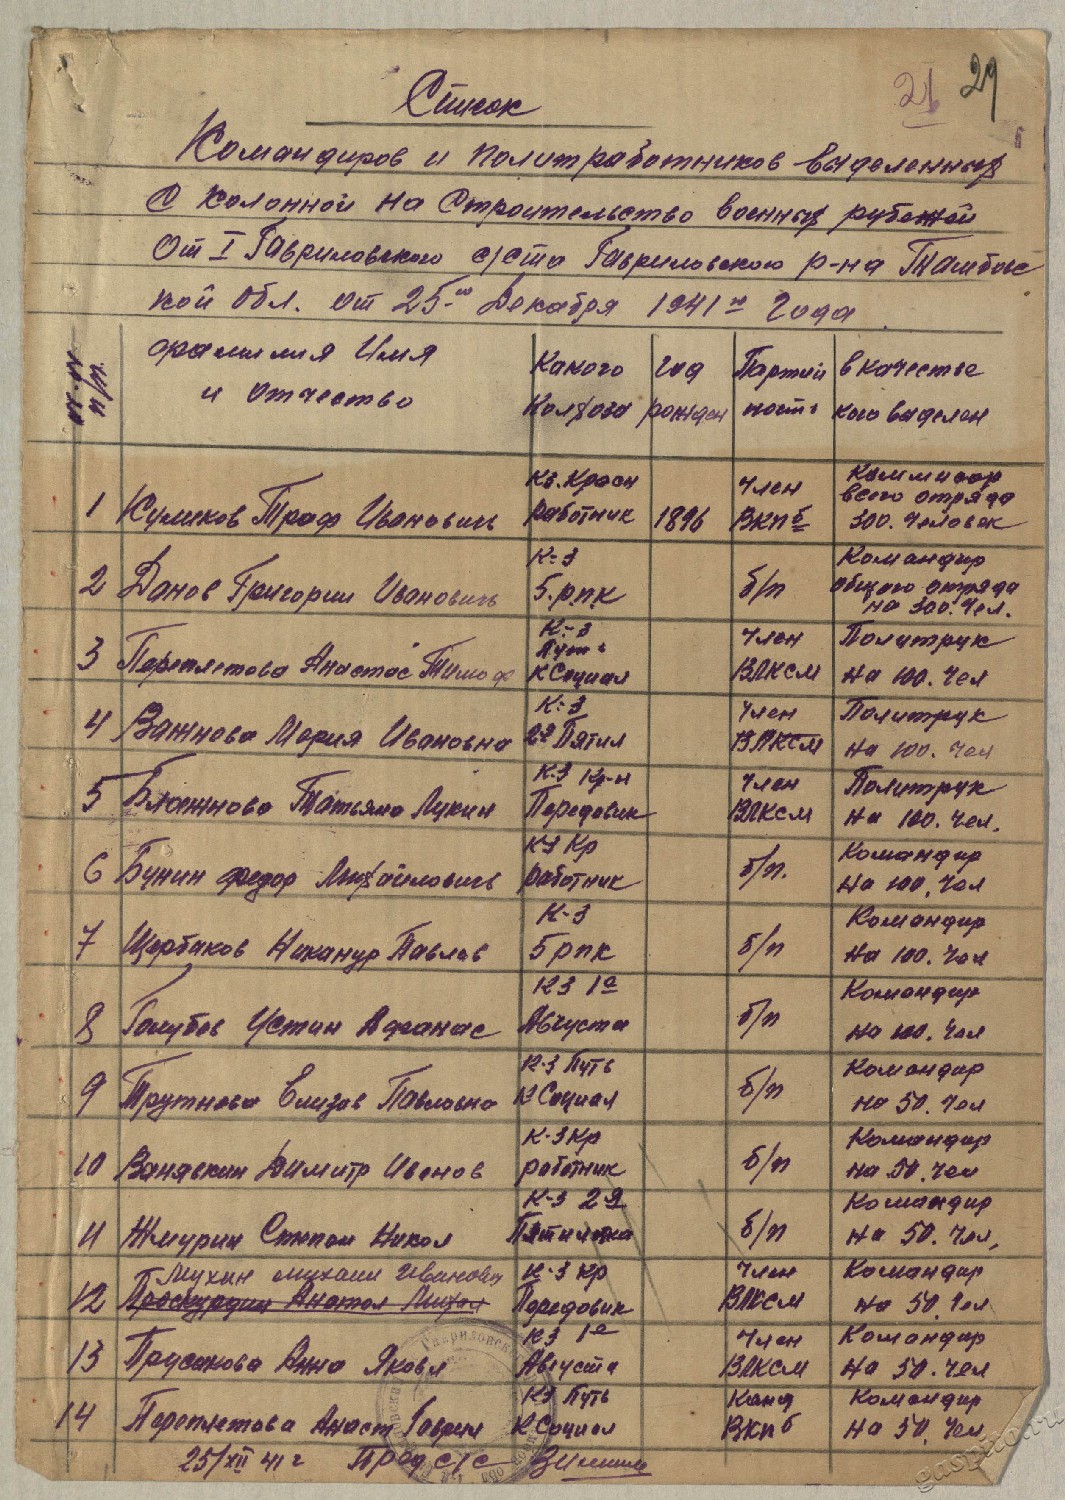 21 29
Список
Командиров и политработников выделенных
с колонной на строительство военных рубежей
от I Гавриловского с/ста Гавриловского р-на Тамбовс
кой обл. от 25-го Декабря 1941 го года
№-№ п/п
фамилия Имя и отчество
Какого Колхоза
год рожден
Партий ность
в качестве кого выделен
1 Куликов Троф Иванович Кз. Красн работник 1896 Член ВКПб Коммисар всего отряда 300. человек
2 Данов Григории Иванович К-з 5.рпк б/п Командир общего отряда на 300. чел.
3 Переплетова Анастас Тимоф К-з Путь к Социал Член ВЛКСМ Политрук на 100. чел
4 Важнова Мария Ивановна К-з 2я Пятил Член ВЛКСМ Политрук на 100. чел
5 Блажнова Татьяна Лукин К-з Кр-н Передовик Член ВЛКСМ Политрук на 100. чел.
6 Бунин федор Михайлович КЗ Кр работник б/п. Командир на 100. чел
7 Щербаков Никанур Павлов К-з 5 рпк б/п Командир на 100. чел
8 Голубов Устин Афанас КЗ 1е Августа б/п Командир на 100. чел
9 Трутнева Елизав Павловна К-з Путь К Социал б/п Командир на 50. чел
10 Димитр Иванов К-з Кр работник б/п Командир на 50. чел
11 Жмурин Степан Никол К-з 2-я Пятилетка б/п Командир на 50. чел.
Мухин михаил Иванович
12 Проскурдин Анатол Михал К-з Кр Передовик Член ВЛКСМ Командир на 50. чел
13 Прусакова Анна Яковл КЗ 1е Августа Член ВЛКСМ Командир на 50. чел
14 Переплетова Анаст Гаврил КЗ Путь К Социал Канд ВКПб Командир на 50. чел
25/XII 41 г Пред с/с
gaspito.ru